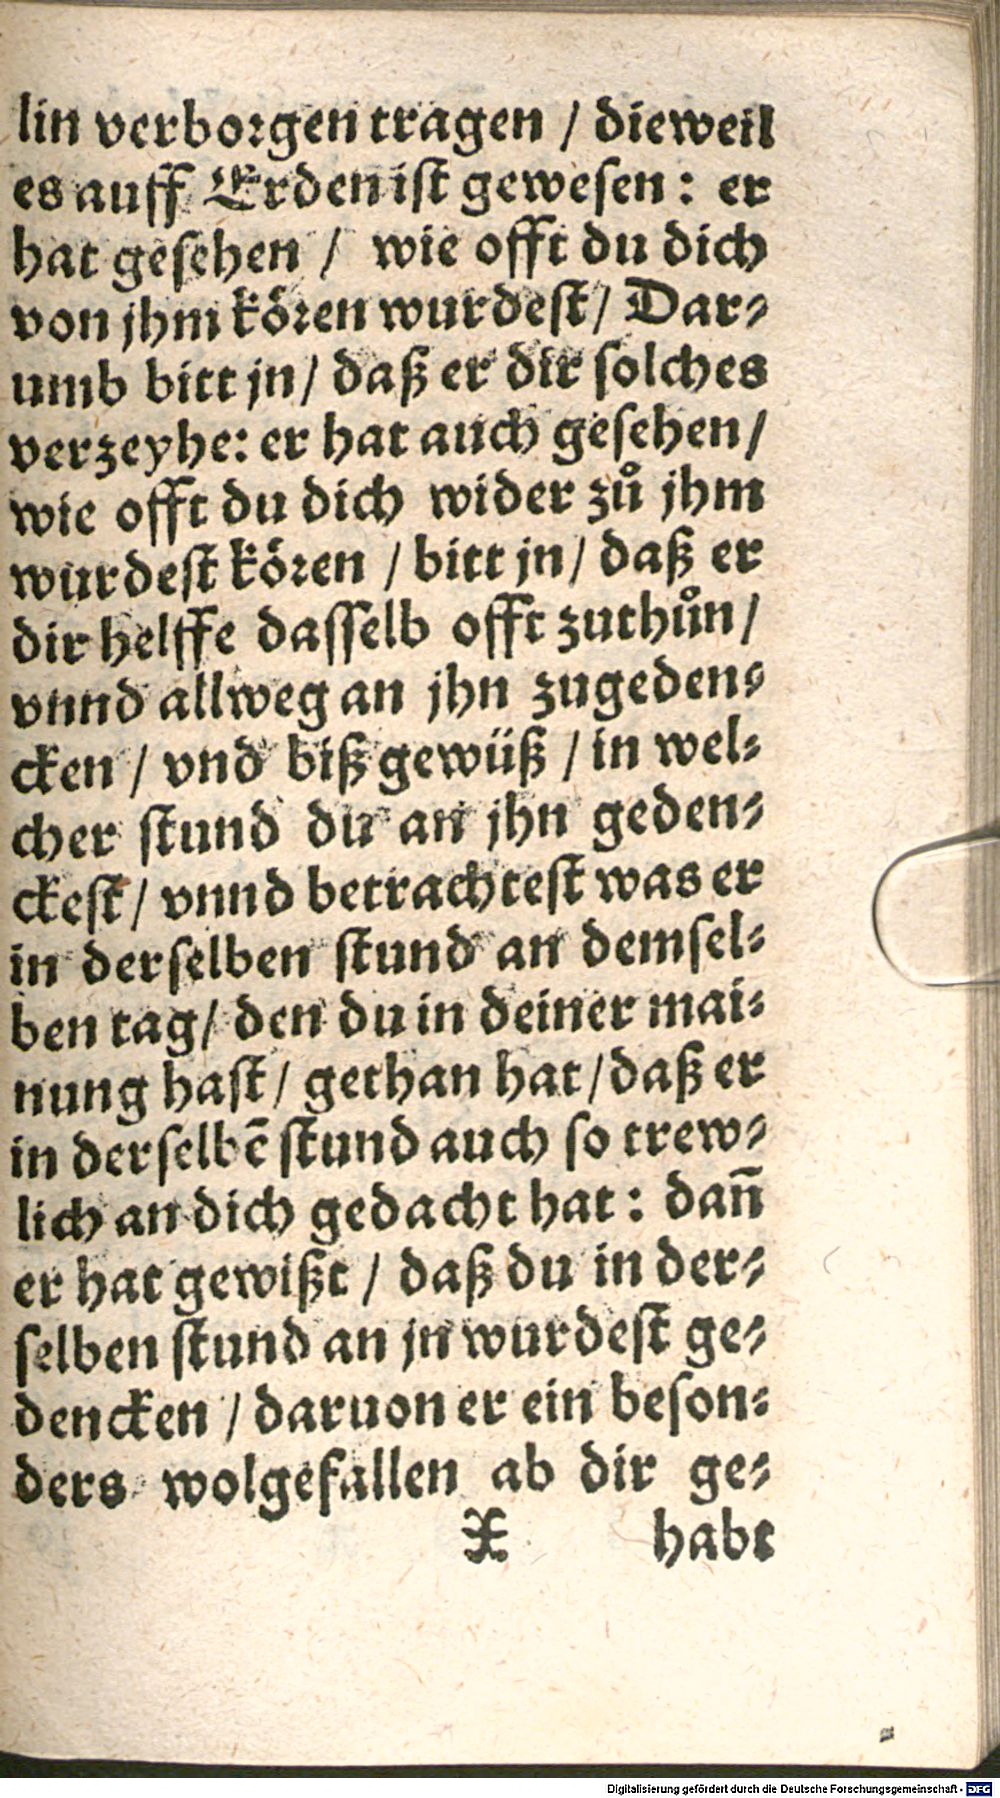 lin verborgen tragen / dieweil
es auff Erden ist gewesen: er
hat gesehen / wie offt du dich
von jhm kören wurdest / Dar⸗
umb bitt jn / daß er dir solches
verzeyhe: er hat auch gesehen /
wie offt du dich wider zů jhm
wurdest kören / bitt jn / daß er
dir helffe dasselb offt zuthůn /
vnnd allweg an jhn zugeden⸗
cken / vnd biß gewüß / in wel⸗
cher stund du an jhn geden⸗
ckest / vnnd betrachtest was er
in derselben stund an demsel⸗
ben tag / den du in deiner mai⸗
nung hast / gethan hat / daß er
in derselbē stund auch so trew⸗
lich an dich gedacht hat: dañ
er hat gewißt / daß du in der⸗
selben stund an jn wurdest ge⸗
dencken / daruon er ein beson⸗
ders wolgefallen ab dir ge⸗
X habt
Digitalisierung gefördert durch die Deutsche Forschungsgemeinschaft - DFG